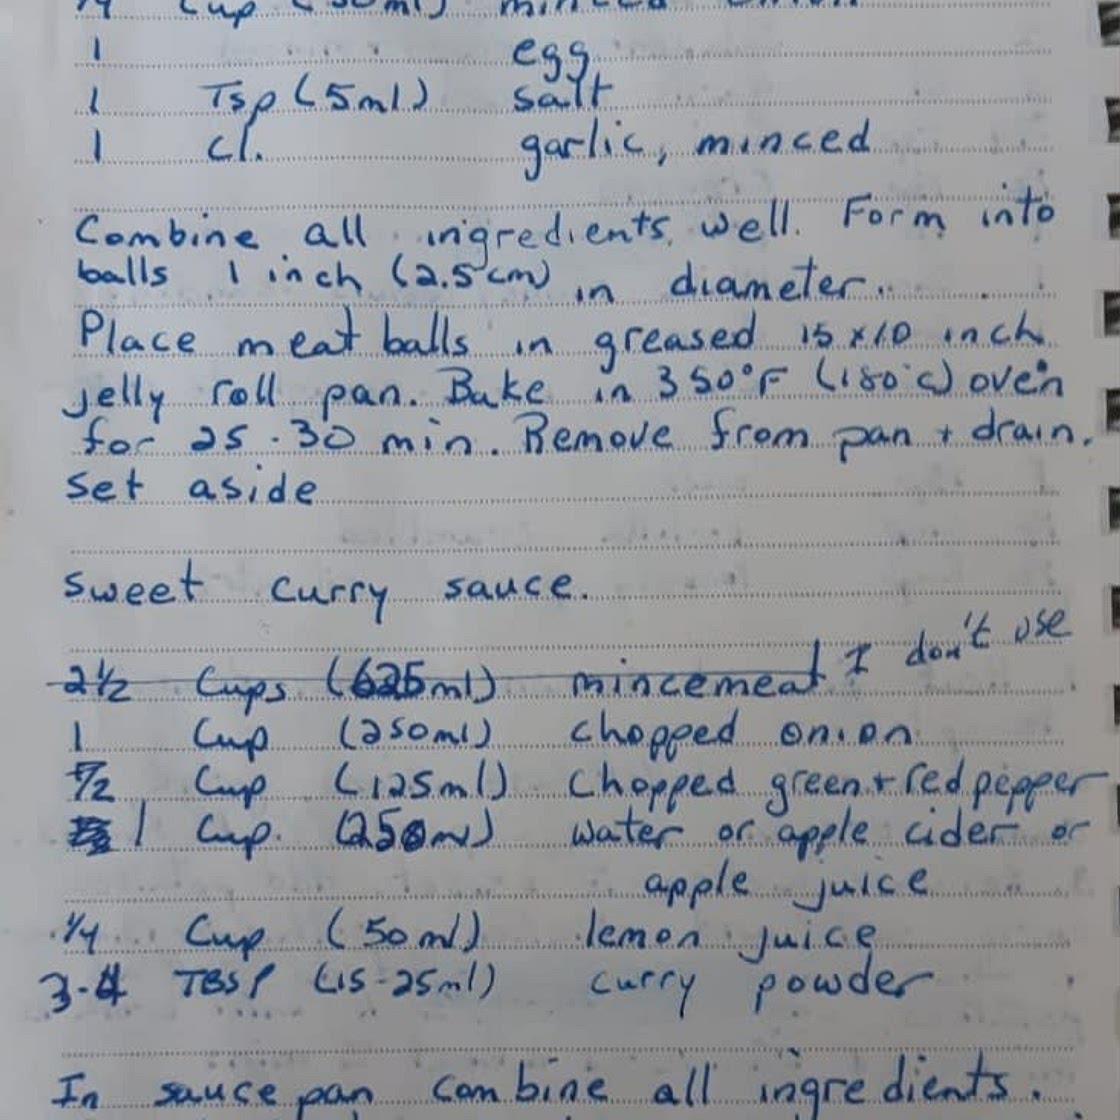 1/4 Cup (50ml) minced onion
1 egg
1 Tsp (5ml) salt
1 cl. garlic, minced
Combine all ingredients well. Form into
balls 1 inch (2.5cm) in diameter.
Place meat balls in greased 15x10 inch
jelly roll pan. Bake in 350°F (180°c) oven
for 25-30 min. Remove from pan + drain.
Set aside
Sweet curry sauce.
2 1/2 Cups (625ml) mincemeat I don't use
1 Cup (250ml) chopped onion
1/2 Cup (125ml) chopped green + red pepper
1 Cup. (250ml) water or apple cider or
apple juice
1/4 Cup (50ml) lemon juice
3-4 TBSP (15-25ml) curry powder
In sauce pan combine all ingredients.